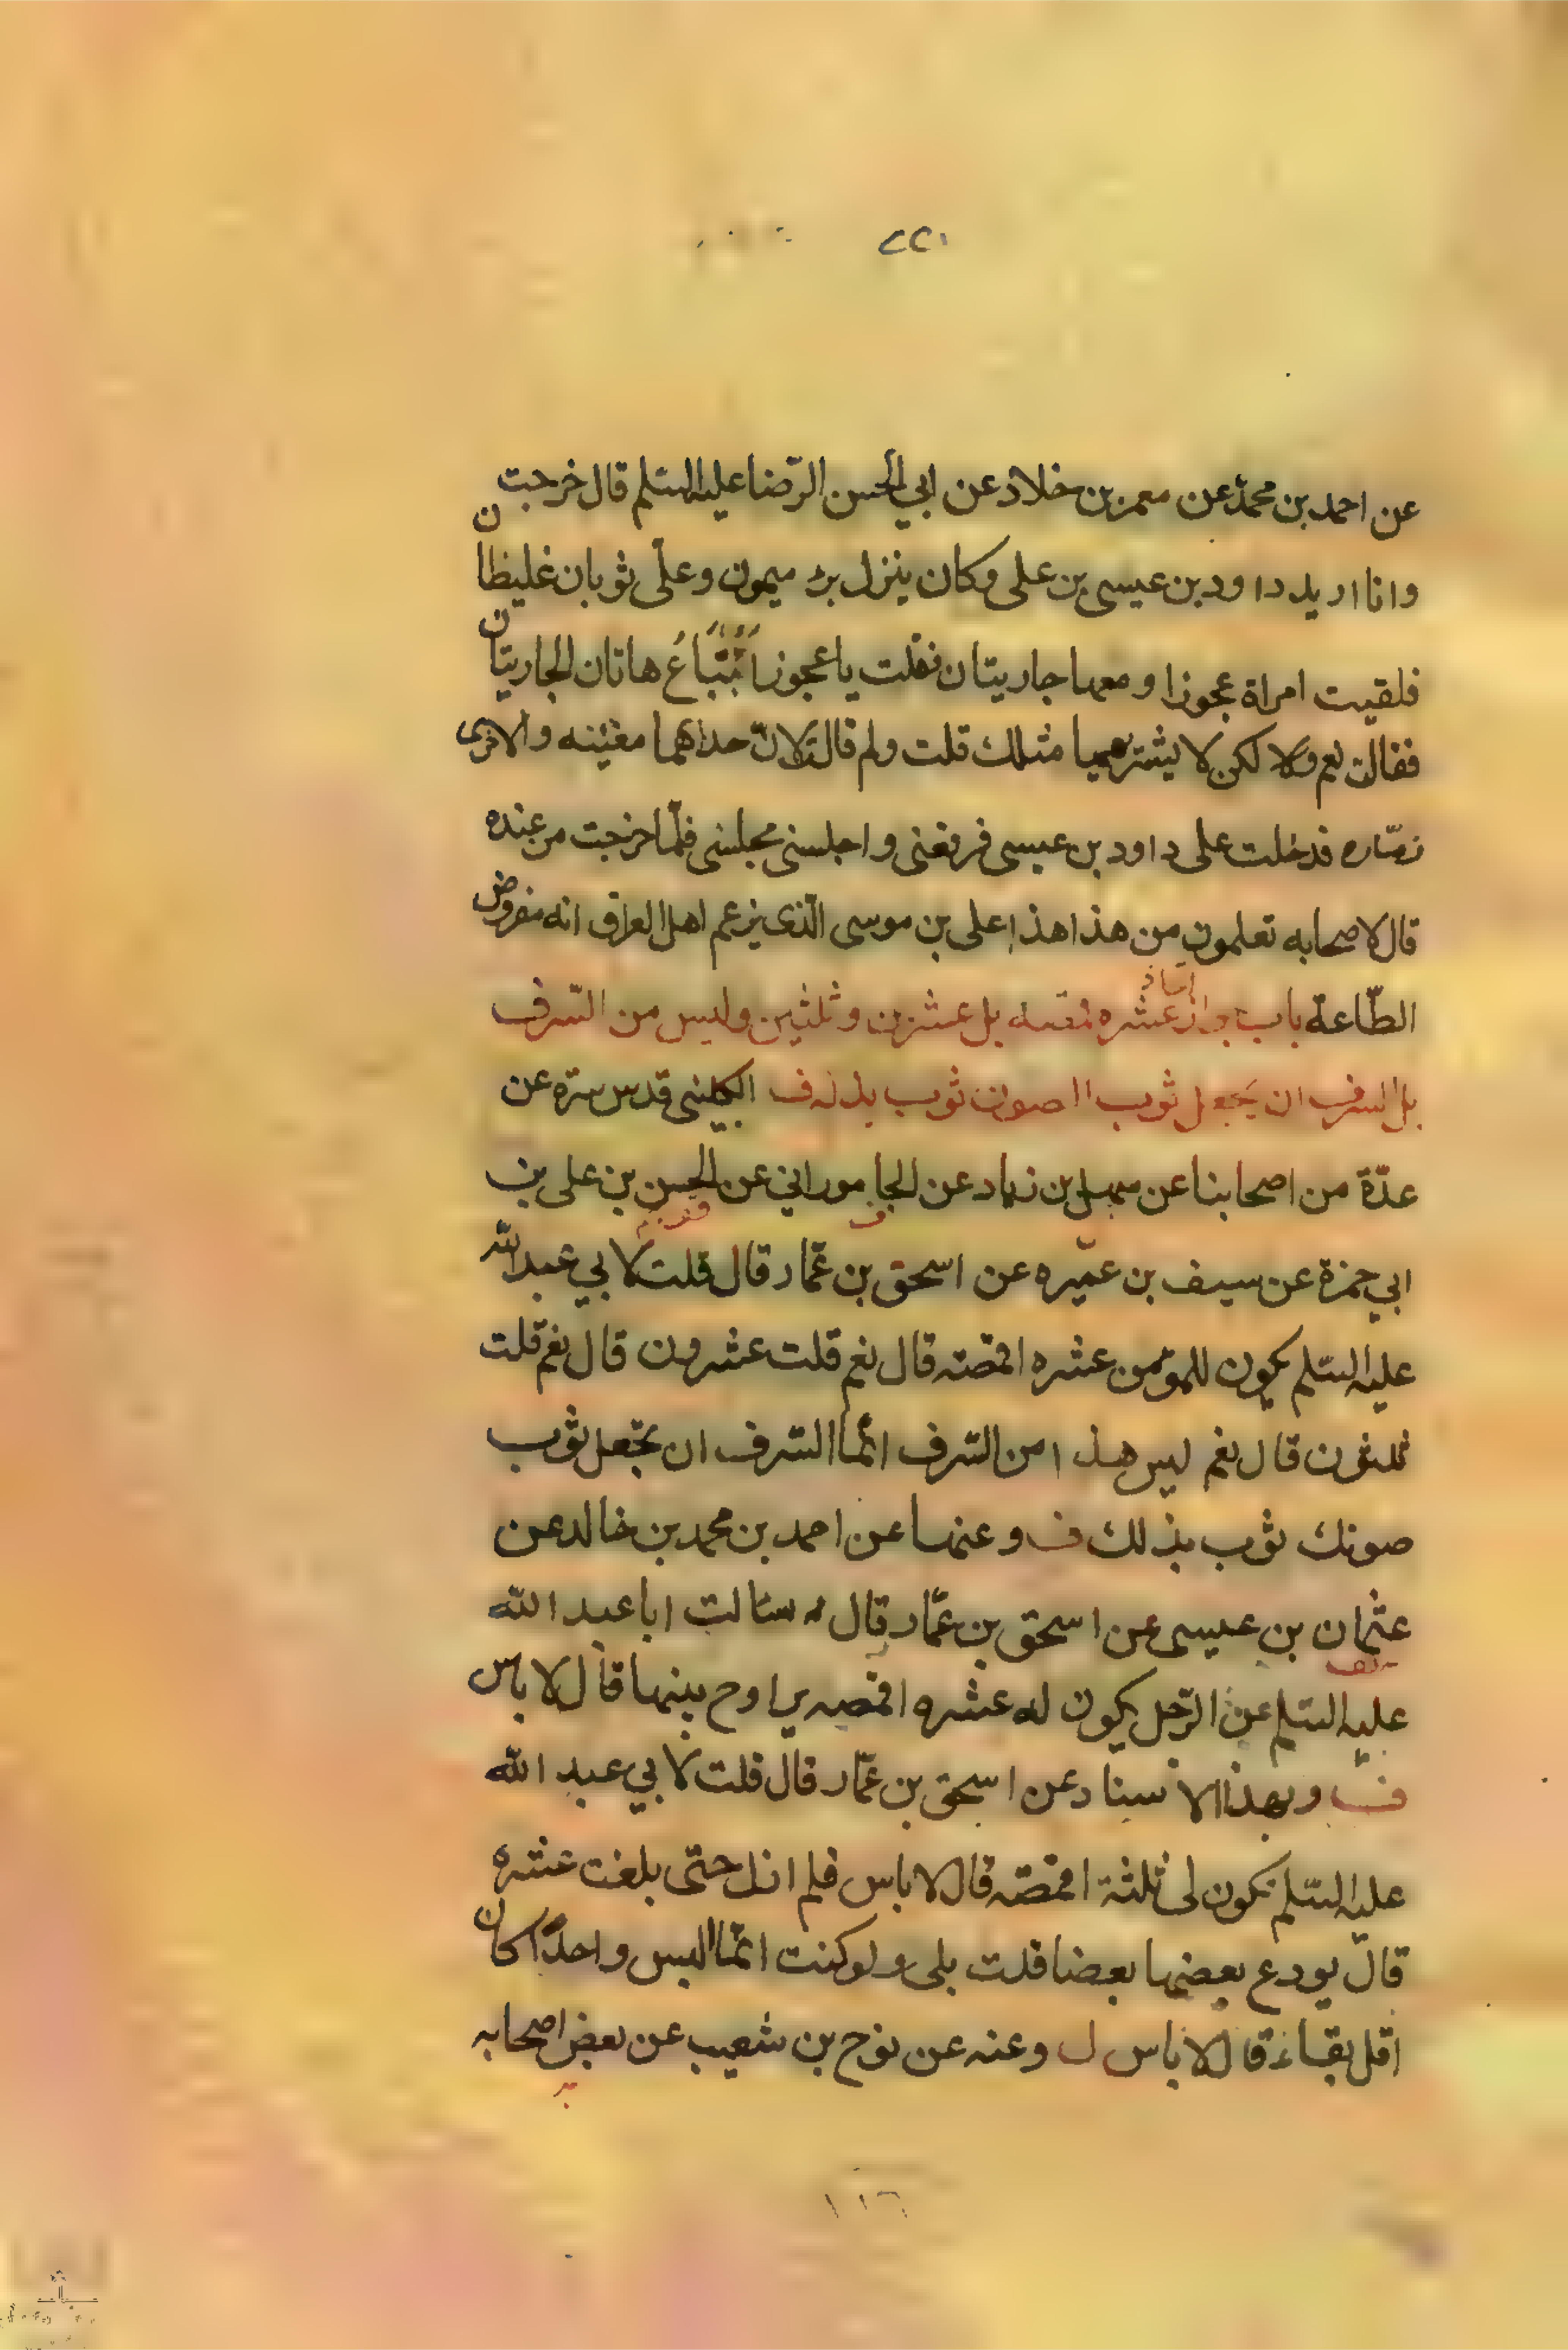 ٢٢١
عن احمد بن محمد عن معمر بن خلاد عن ابي الحسن الرّضا عليه السّلم قال خرجت
وانا اريد داود بن عيسى بن علي وكان ينزل بئر ميمون وعلّى ثوبان غليظان
فلقيت امراة عجوزا ومعها جاريتان فقلت يا عجوز اَتُبَاعُ هاتان الجاريتان
فقالت نعم ولا لكن لا يشتريهما مثلك قلت ولم قالت لانّ احداهما مغنيّنه والاخرى
زمّاره فدخلت على داود بن عيسى فرفعنى واجلسنى مجلسى فلمّا خرجت من عنده
قال لاصحابه تعلمون من هذا هذا على بن موسى الّذى يزعم اهل العراق انه مفروض
الطّاعة باب جواز اتخاذ عشره اقمصه بل عشرين وثلثين وليس من السّرف
بل السرف ان يجعل ثوب الصون ثوب بذله ف الكليني قدس سرّه عن
عدّة من اصحابنا عن سهل بن زياد عن الجاموراني عن الحسن بن على بن
ابي حمزة عن سيف بن عميره عن اسحق بن عمّار قال قلت لابي عبدالله
عليه السّلم يكون للمؤمن عشره اقمصّه قال نعم قلت عشرون قال نعم قلت
ثلثون قال نعم ليس هذا من السّرف انّما السّرف ان تجعل ثوب
صونك ثوب بذلك ف وعنها عن احمد بن محمد بن خالد عن
عثمان بن عيسى عن اسحق بن عمّار قال سالت ابا عبد الله
عليه السّلم عن الرّجل يكون له عشره اقمصه يراوح بينها قال لا باس
ف وبهذا الاسناد عن اسحق بن عمّار قال قلت لابي عبد الله
عليه السّلم تكون لى ثلثة اقمصّه قال لا باس فلم ازل حتّى بلغت عشره
قال يودع بعضها بعضا قلت بلى ولو كنت انّما البس واحدًا كان
اقل بقاء قال لا باس ل وعنه عن نوح بن شعيب عن بعض اصحابه